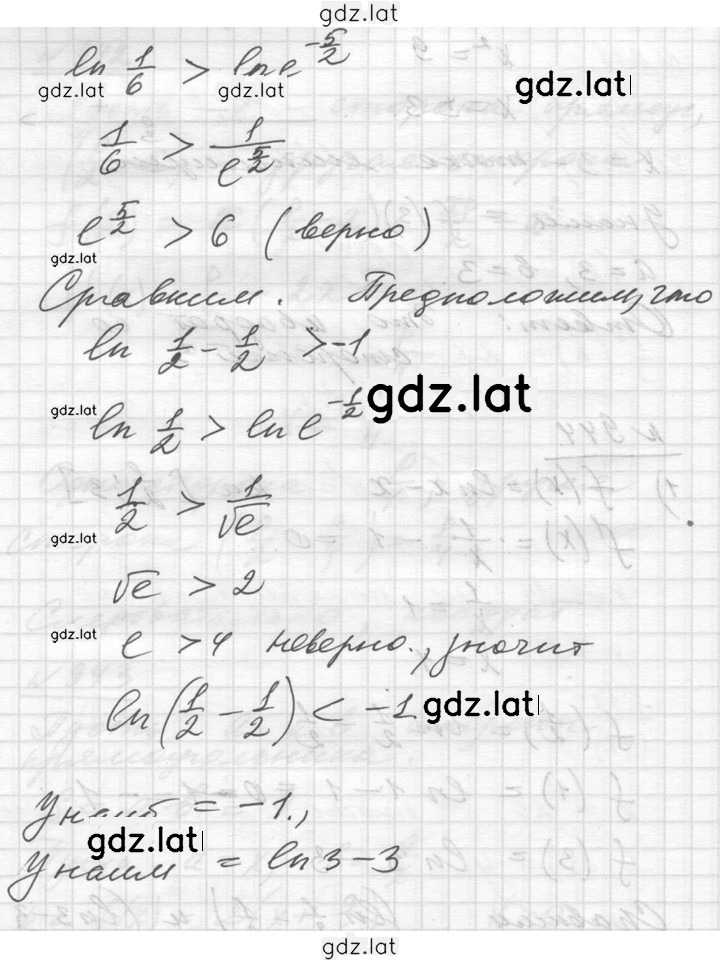 gdz.lat
ln 1/6 > ln e^(-5/2)
gdz.lat gdz.lat gdz.lat
1/6 > 1/e^(5/2)
e^(5/2) > 6 (верно)
gdz.lat
Сравним. Предположим, что
ln 1/2 - 1/2 > -1
gdz.lat gdz.lat
ln 1/2 > ln e^(-1/2)
1/2 > 1/√e
gdz.lat
√e > 2
gdz.lat
e > 4 неверно., значит
ln(1/2 - 1/2) < -1
gdz.lat
У наиб = -1.,
gdz.lat
У наим = ln 3 - 3
gdz.lat